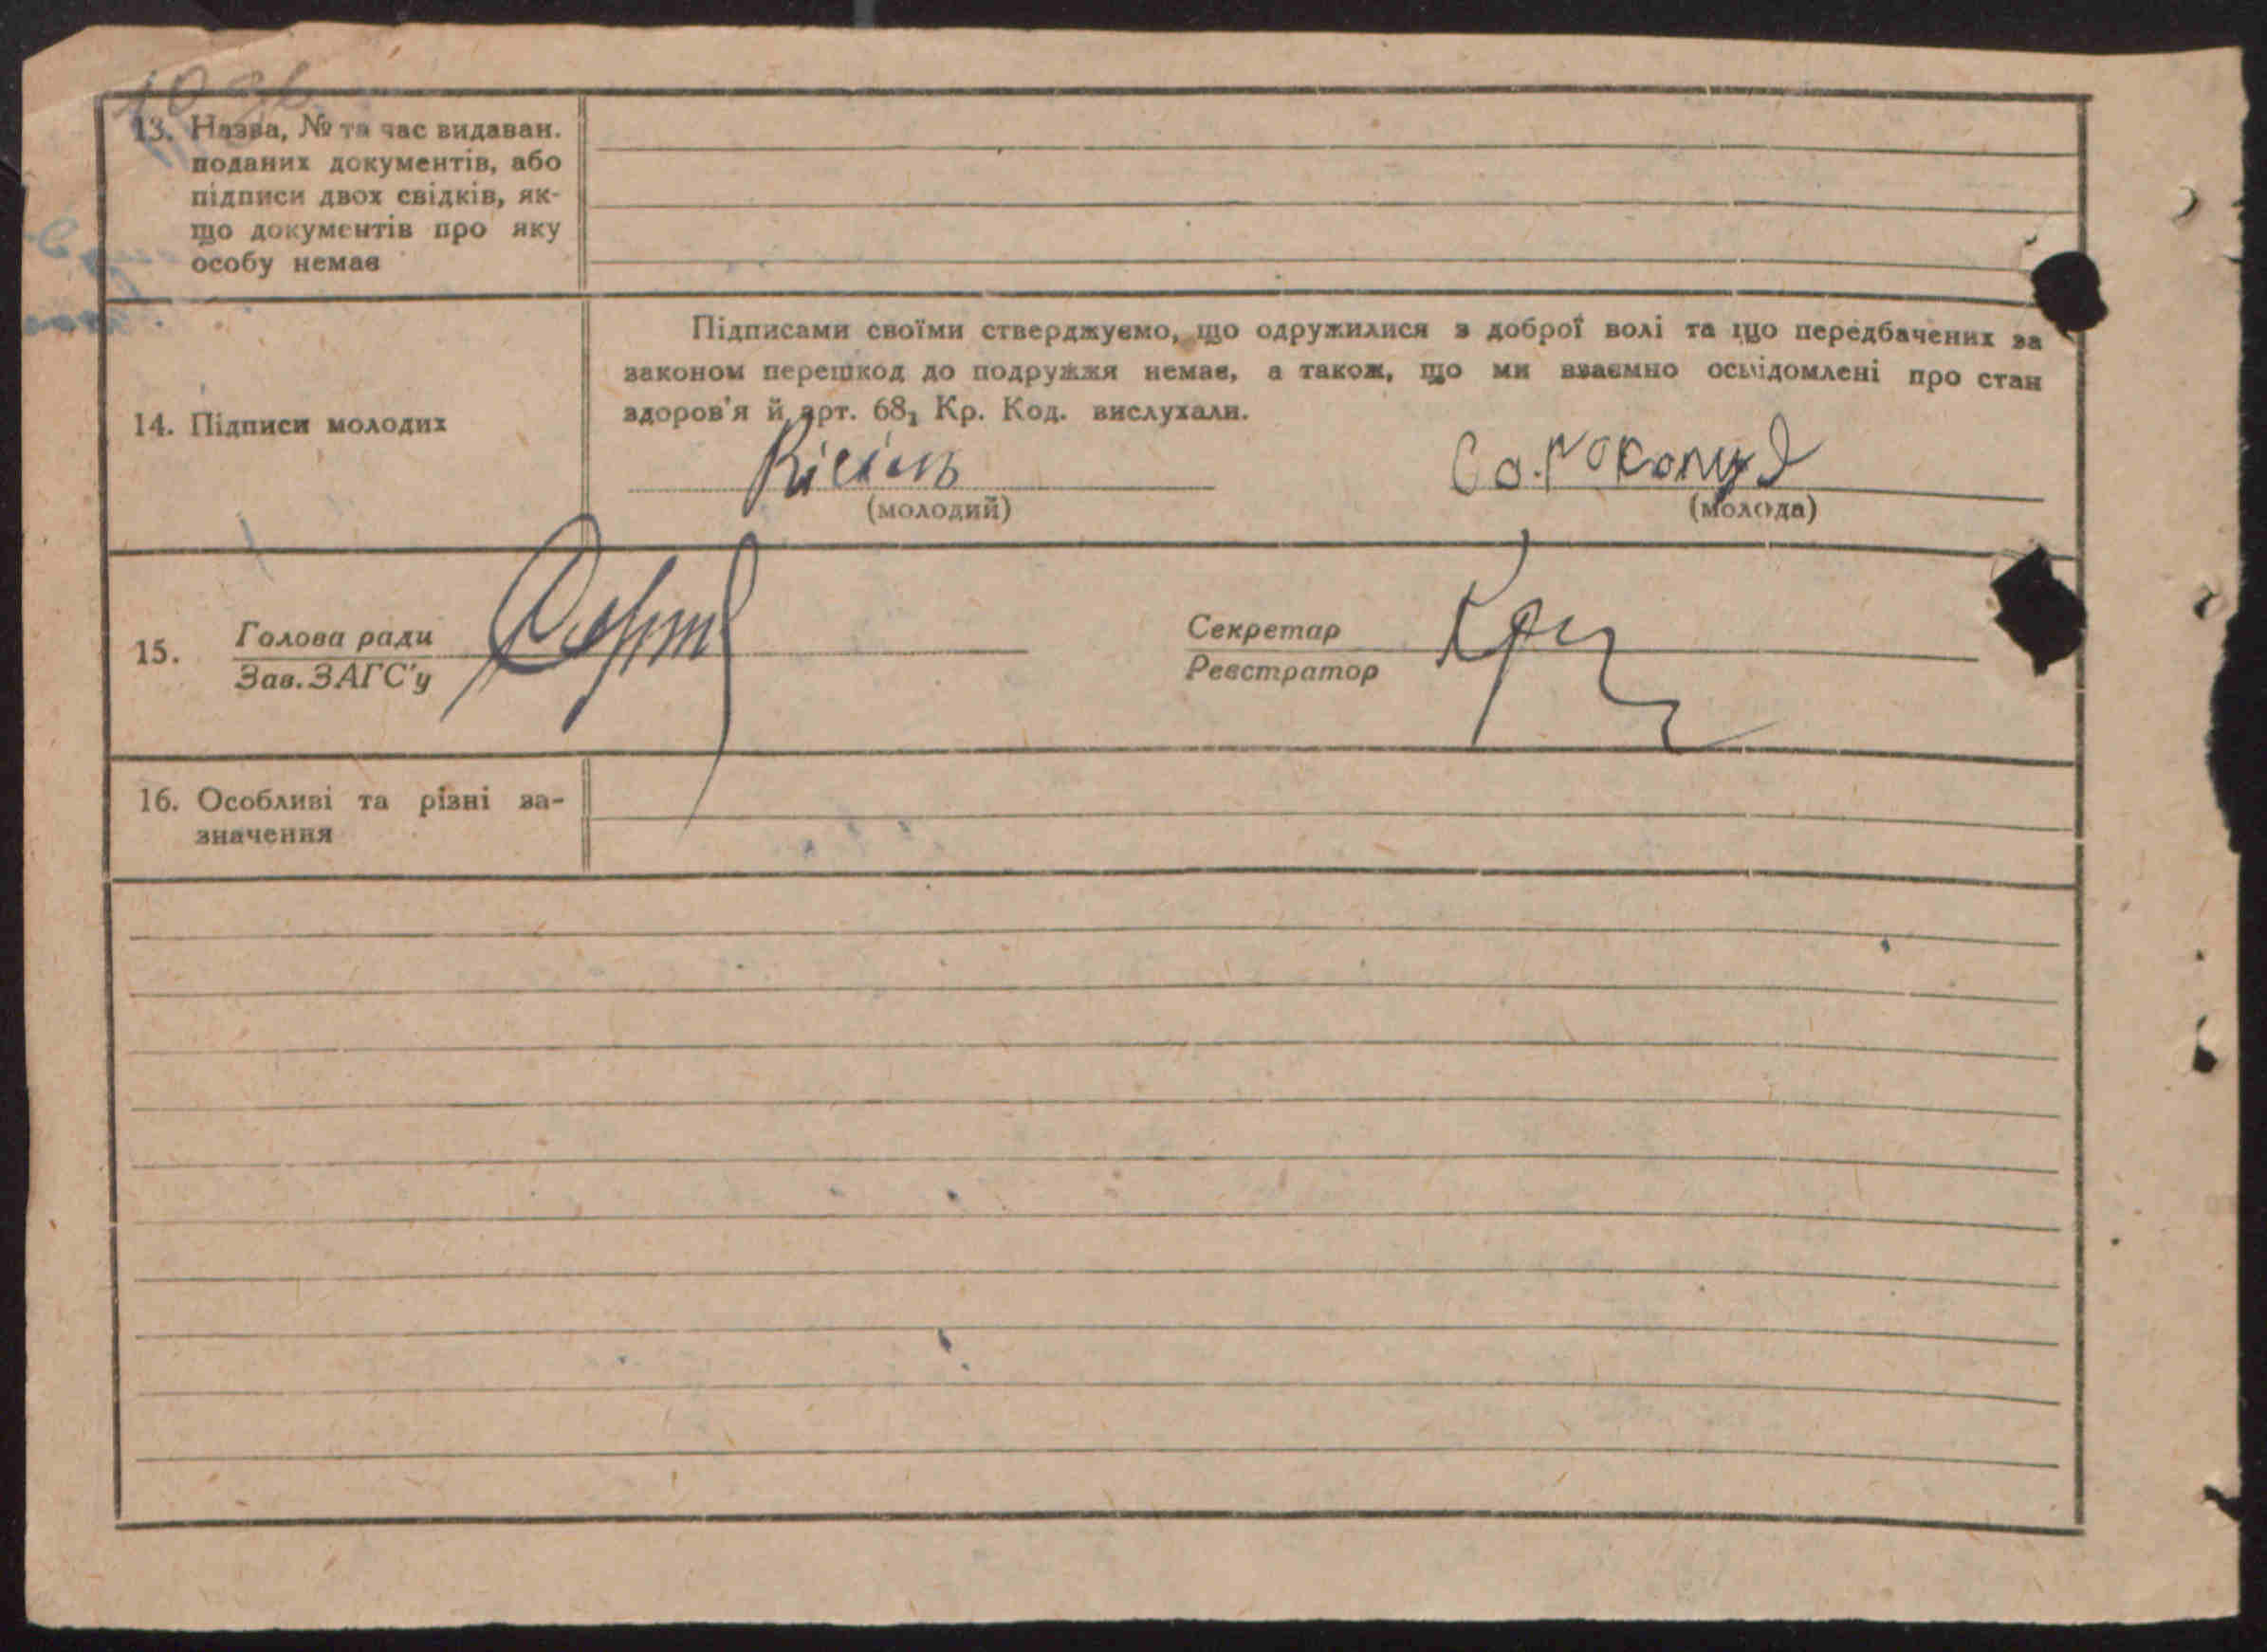 13. Назва, № та час видаван.
поданих документів, або
підписи двох свідків, як-
що документів про яку
особу немає
Підписами своїми стверджуємо, що одружилися з доброї волі та що передбачених за
законом перешкод до подружжя немає, а також, що ми взаємно освідомлені про стан
здоров'я й арт. 68₁ Кр. Код. вислухали.
14. Підписи молодих
Кісіль
(молодий)
(молода)
15. Голова ради
Зав. ЗАГС'у
Секретар
Реєстратор
16. Особливі та різні за-
значення